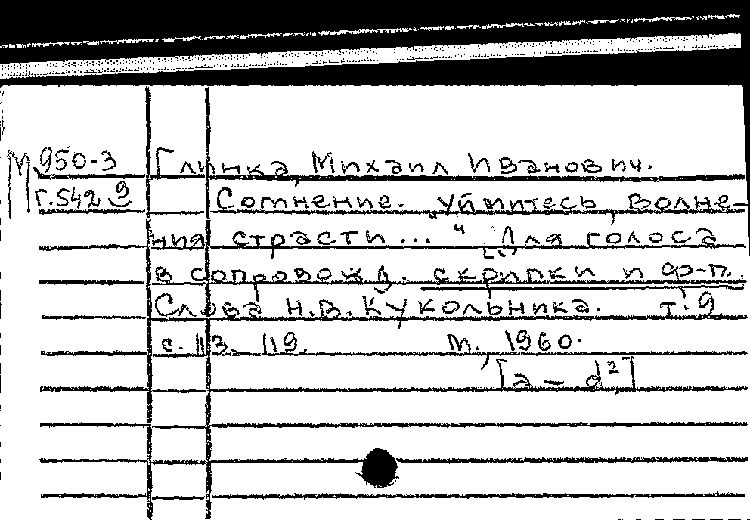 М 950-3 Глинка, Михаил Иванович.
Г.542 э Сомнение. „Уймитесь, волне-
ния страсти... " [Для голоса
в сопровожд. скрипки и ф-п.
Слова Н.В. Кукольника. т. 9
с. 113. 119. М., 1960.
[a – d²]